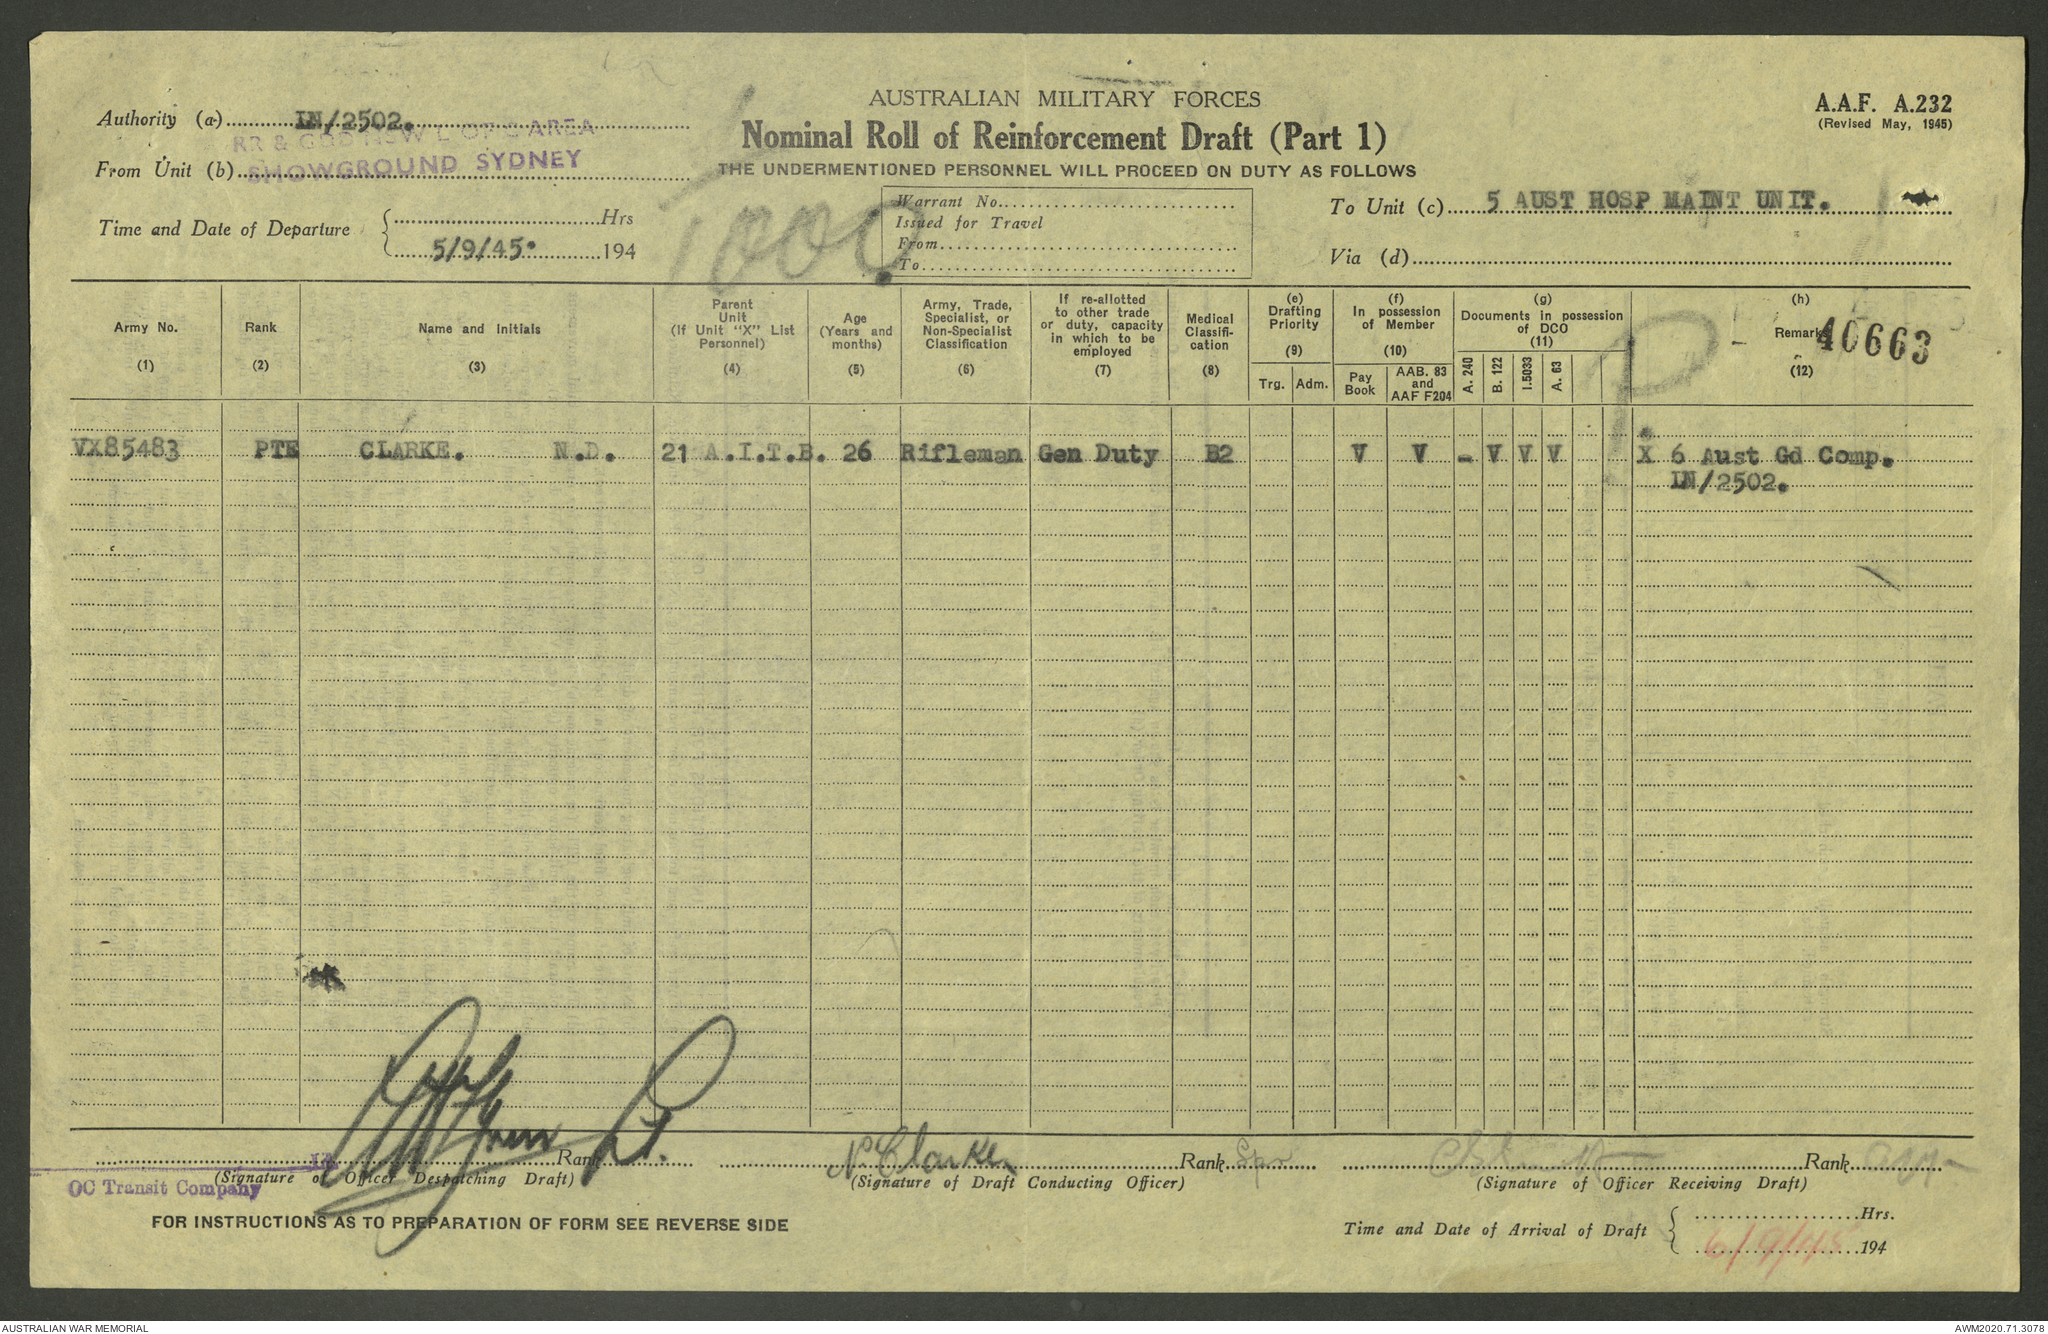 AUSTRALIAN MILITARY FORCES
A.A.F. A.232
(Revised May, 1945)
Nominal Roll of Reinforcement Draft (Part 1)
THE UNDERMENTIONED PERSONNEL WILL PROCEED ON DUTY AS FOLLOWS
Authority (a) LN/2502.
From Unit (b) SHOWGROUND SYDNEY
Time and Date of Departure { Hrs
5/9/45. 194
1000
Warrant No.
Issued for Travel
From
To
To Unit (c) 5 AUST HOSP MAINT UNIT.
Via (d)
Army No. (1)
Rank (2)
Name and Initials (3)
Parent Unit (If Unit "X" List Personnel) (4)
Age (Years and months) (5)
Army, Trade, Specialist, or Non-Specialist Classification (6)
If re-allotted to other trade or duty, capacity in which to be employed (7)
Medical Classifi-cation (8)
(e) Drafting Priority (9) Trg. Adm.
(f) In possession of Member (10) Pay Book AAB. 83 and AAF F204
(g) Documents in possession of DCO (11) A. 240 B. 122 I.5033 A. 63
(h) Remarks (12)
40663
P
VX85483 PTE CLARKE. N.D. 21 A.I.T.B. 26 Rifleman Gen Duty B2 V V - V V V X 6 Aust Gd Comp.
LN/2502.
Rank Lt.
(Signature of Officer Despatching Draft)
Lt
OC Transit Company
N D Clarke Rank Spr
(Signature of Draft Conducting Officer)
Rank
(Signature of Officer Receiving Draft)
FOR INSTRUCTIONS AS TO PREPARATION OF FORM SEE REVERSE SIDE
Time and Date of Arrival of Draft { Hrs.
6/9/45 194
AUSTRALIAN WAR MEMORIAL
AWM2020.71.3078